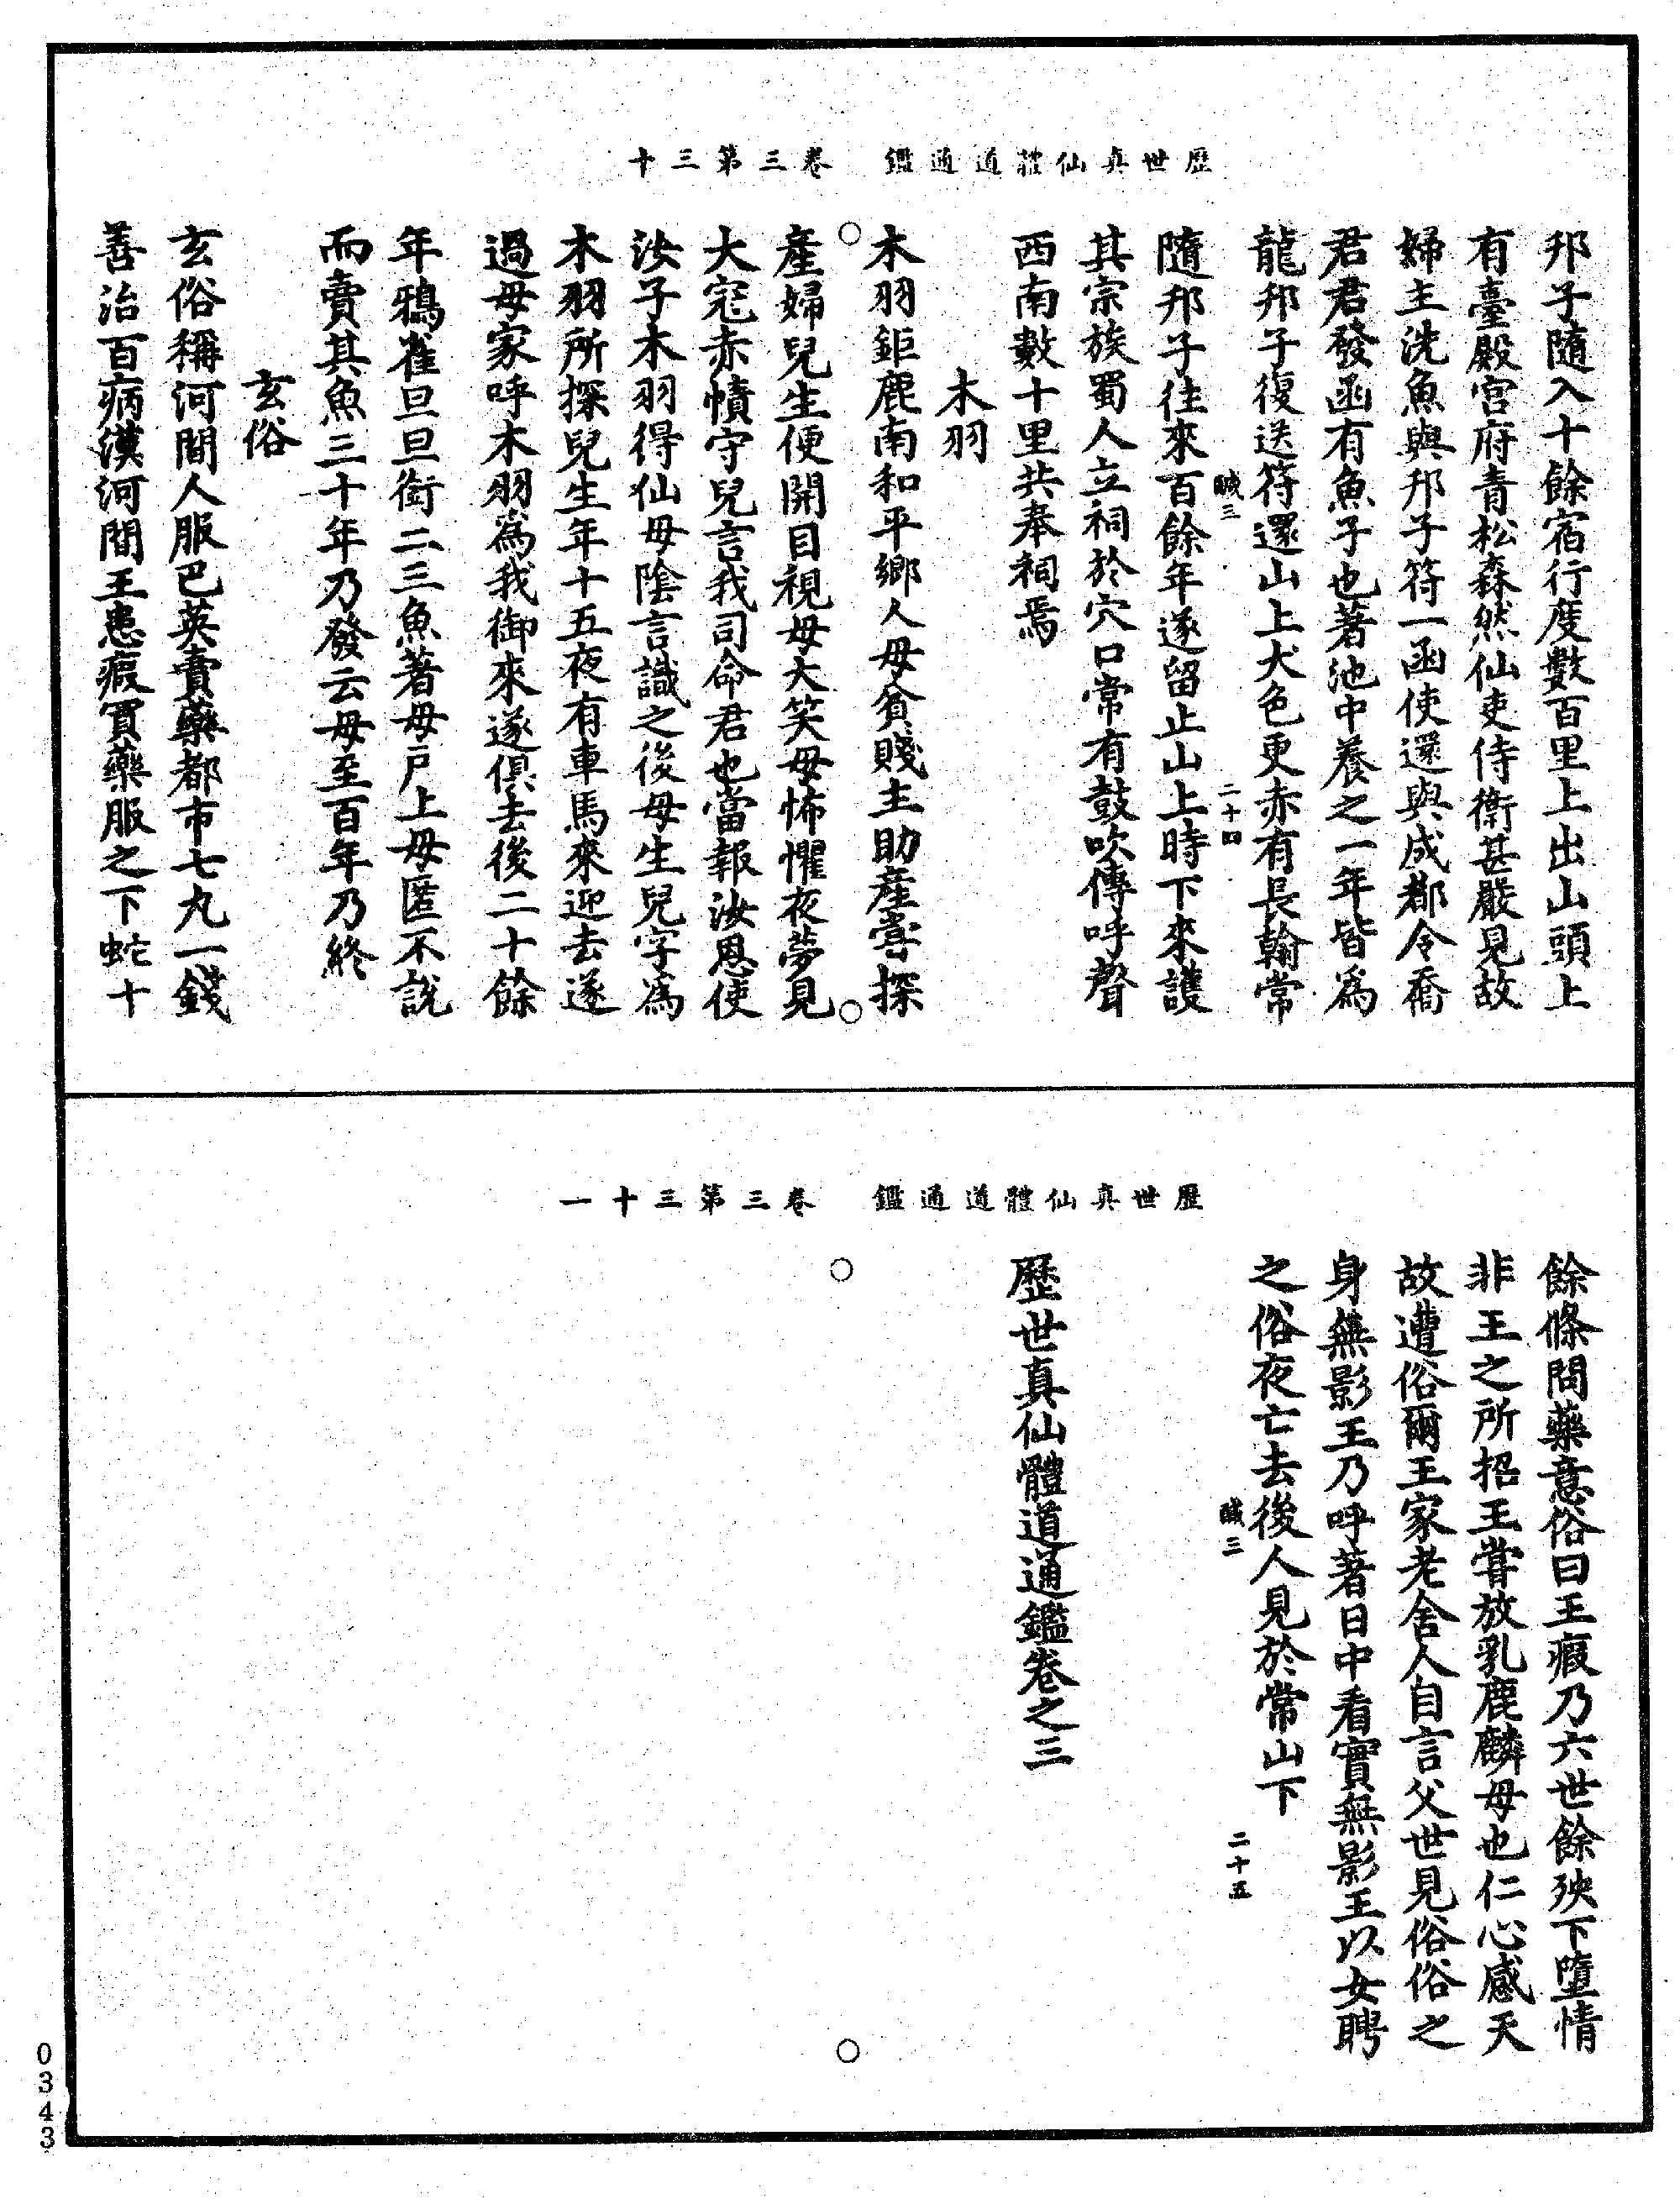 歷世真仙體道通鑑　卷三第三十
邦子隨入十餘宿行度數百里上出山頭上
有臺殿宮府青松森然仙吏侍衛甚嚴見故
婦主洗魚與邦子符一函使還與成都令喬
君君發函有魚子也著池中養之一年皆為
龍邦子復送符還山上犬色更赤有長翰常
鹹三　二十四
隨邦子往來百餘年遂留止山上時下來護
其宗族蜀人立祠於穴口常有鼓吹傳呼聲
西南數十里共奉祠焉
木羽
木羽鉅鹿南和平鄉人母貧賤主助產嘗探
產婦兒生便開目視母大笑母怖懼夜夢見
大冠赤幘守兒言我司命君也當報汝恩使
汝子木羽得仙母陰言識之後母生兒字為
木羽所探兒生年十五夜有車馬來迎去遂
過母家呼木羽為我御來遂俱去後二十餘
年鸦雀旦旦銜二三魚著母戶上母匿不說
而賣其魚三十年乃發云母至百年乃終
玄俗
玄俗稱河間人服巴英賣藥都市七丸一錢
善治百病漢河間王患瘕買藥服之下蛇十
歷世真仙體道通鑑　卷三第三十一
餘條問藥意俗曰王瘕乃六世餘殃下墮情
非王之所招王嘗放乳鹿麟母也仁心感天
故遭俗爾王家老舍人自言父世見俗俗之
身無影王乃呼著日中看實無影王以女聘
之俗夜亡去後人見於常山下
鹹三　二十五
歷世真仙體道通鑑卷之三
0343